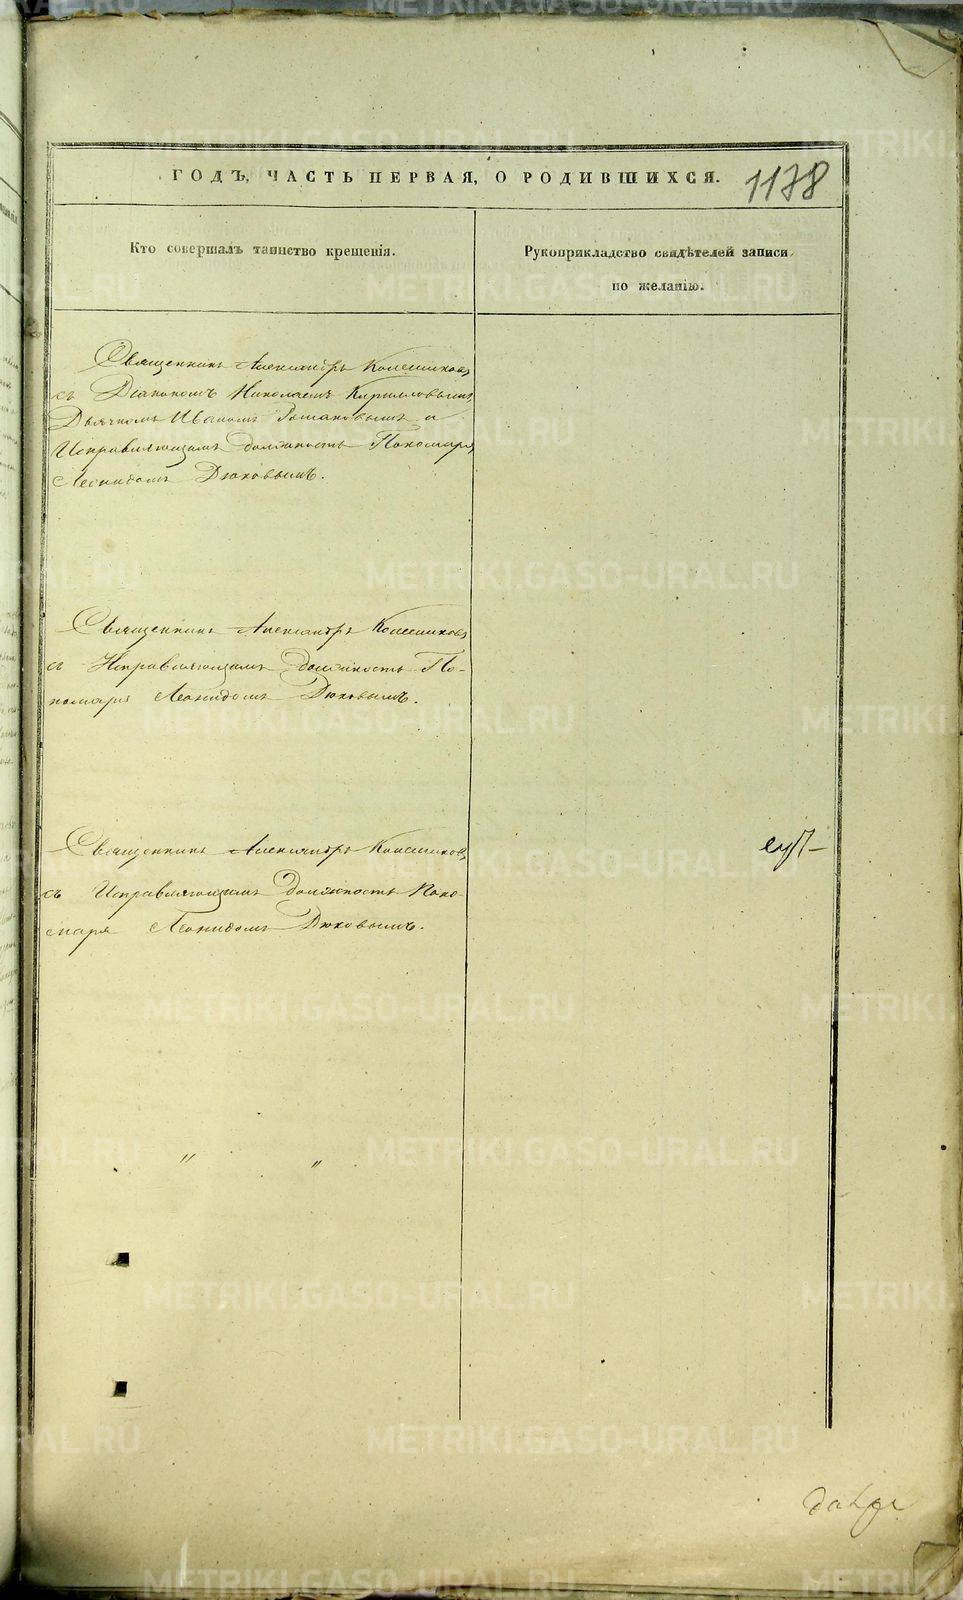 ГОДЪ, ЧАСТЬ ПЕРВАЯ, О РОДИВШИХСЯ.
1178
Кто совершалъ таинство крещенія.
Рукоприкладство свидѣтелей записи
по желанію.
Священникъ Александръ Колесниковъ
съ Діакономъ Николаемъ Кирилловымъ
Дьячкомъ Иваномъ Романовымъ и
Исправляющимъ должность Пономаря
Леонидомъ Дюковымъ.
Священникъ Александръ Колесниковъ
съ Исправляющимъ должность По-
номаря Леонидомъ Дюковымъ.
Священникъ Александръ Колесниковъ
съ Исправляющимъ должность Поно-
маря Леонидомъ Дюковымъ.
" "
METRIKI.GASO-URAL.RU